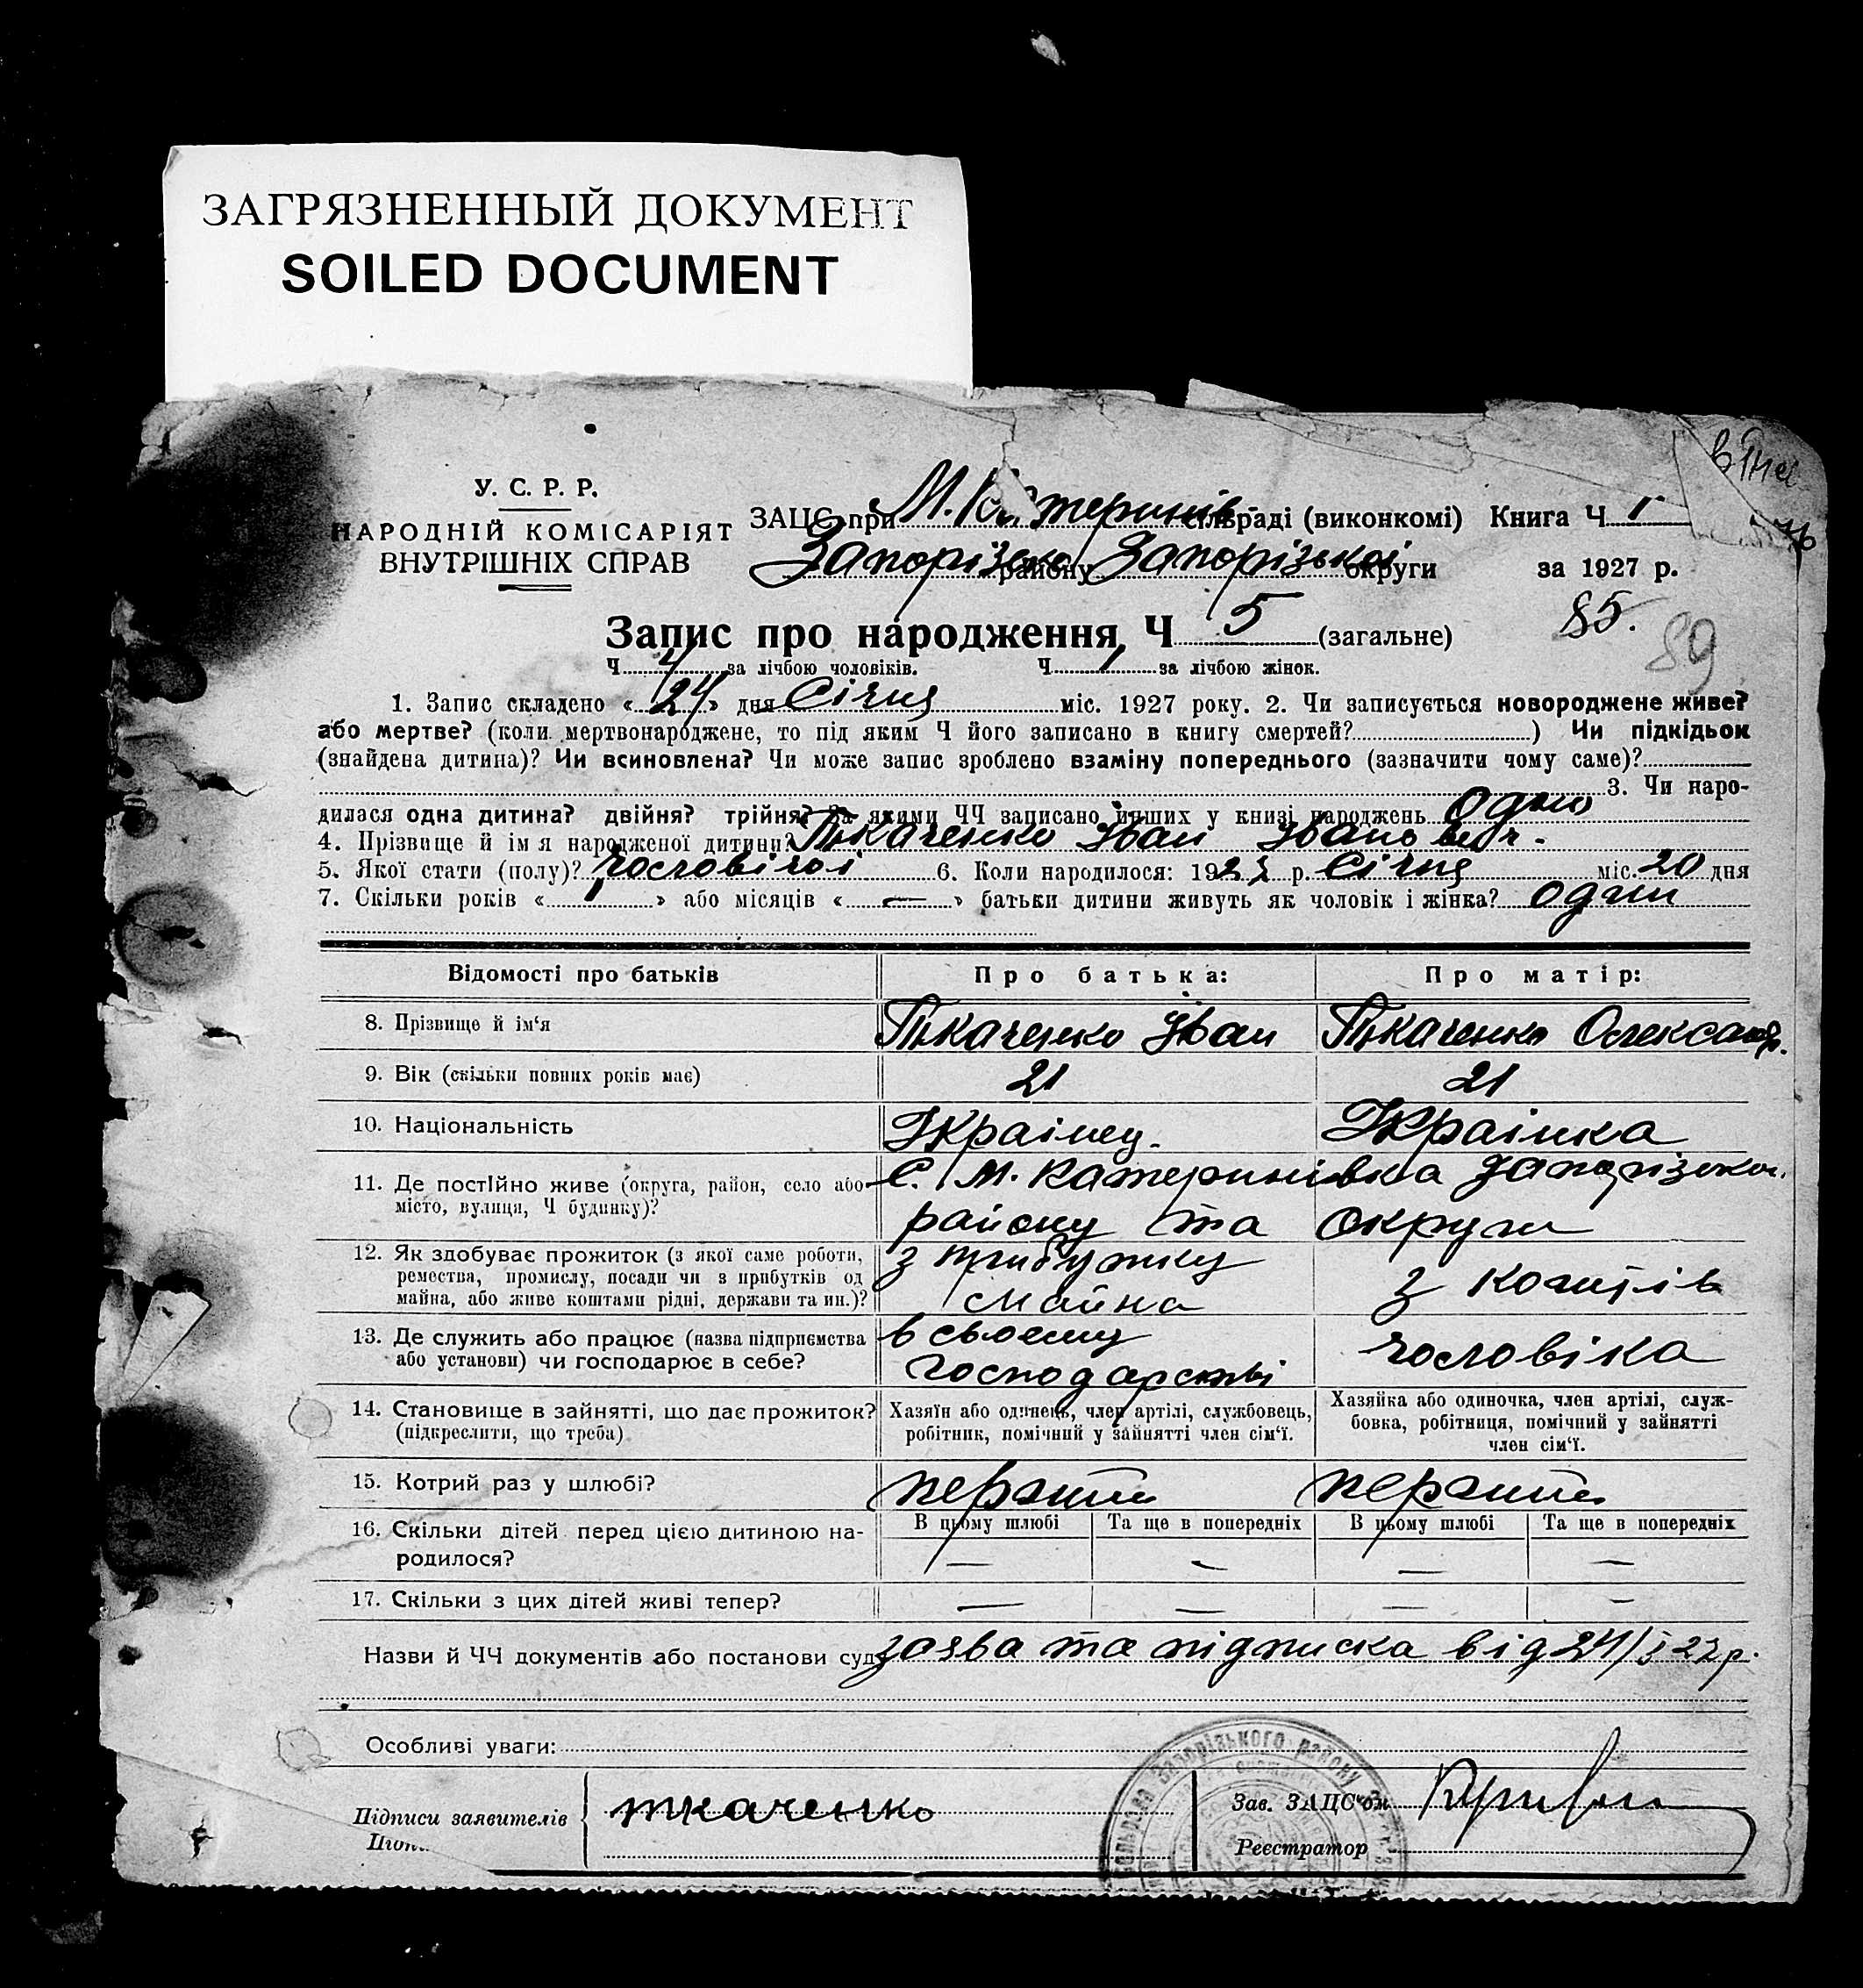 ЗАГРЯЗНЕННЫЙ ДОКУМЕНТ
SOILED DOCUMENT
У. С. Р. Р.
НАРОДНІЙ КОМІСАРІЯТ
ВНУТРІШНІХ СПРАВ
ЗАЦС при М. Катеринів- сільраді (виконкомі) Книга Ч 1
Запорізько району Запорізької округи за 1927 р.
Запис про народження Ч 5 (загальне) 85.
89
Ч 4 за лічбою чоловіків. Ч 1 за лічбою жінок.
1. Запис складено « 24 » дня Січня міс. 1927 року. 2. Чи записується новороджене живе?
або мертве? (коли мертвонароджене, то під яким Ч його записано в книгу смертей? ) Чи підкідьок
(знайдена дитина)? Чи всиновлена? Чи може запис зроблено взаміну попереднього (зазначити чому саме)?
3. Чи наро-
дилася одна дитина? двійня? трійня? За якими ЧЧ записано инших у книзі народжень одно
4. Прізвище й імя народженої дитини? Ткаченко Іван Іванович.
5. Якої стати (полу)? чоловічої 6. Коли народилося: 1927 р. Січня міс. 20 дня
7. Скільки років « 1 » або місяців « — » батьки дитини живуть як чоловік і жінка? один
Відомості про батьків Про батька: Про матір:
8. Прізвище й ім'я Ткаченко Іван Ткаченко Олександр.
9. Вік (скільки повних років має) 21 21
10. Національність Українец. Українка
11. Де постійно живе (округа, район, село або С. М. Катеринівка Запорізьког.
місто, вулиця, Ч будинку)? району та округи
12. Як здобуває прожиток (з якої саме роботи, з прибутку
ремества, промислу, посади чи з прибутків од з коштів
майна, або живе коштами рідні, держави та ин.)? майна
13. Де служить або працює (назва підприємства в своему чоловіка
або установи) чи господарює в себе? господарстві
14. Становище в зайнятті, що дає прожиток? Хазяїн або одинець, член артілі, службовець, Хазяйка або одиночка, член артілі, служ-
(підкреслити, що треба) робітник, помічний у зайнятті член сім'ї. бовка, робітниця, помічний у зайнятті
член сім'ї.
15. Котрий раз у шлюбі? перший перший
16. Скільки дітей перед цією дитиною на- В цьому шлюбі Та ще в попередніх В цьому шлюбі Та ще в попередніх
родилося? — — — —
17. Скільки з цих дітей живі тепер? — — — —
Назви й ЧЧ документів або постанови суду заява та підписка від 24/I 27 р.
Особливі уваги:
Підписи заявителів ткаченко Зав. ЗАЦС'ом
Реєстратор
Запорізького району